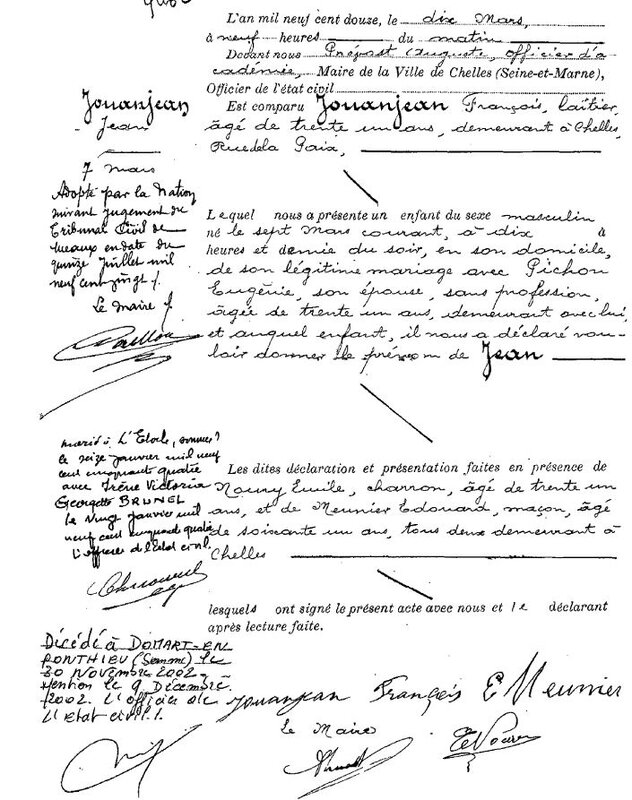 L'an mil neuf cent douze, le dix Mars,
à neuf heures du matin
Devant nous Prévost Auguste, officier d'a
cadémie, Maire de la Ville de Chelles (Seine-et-Marne),
Officier de l'état civil
Est comparu Jouanjean François, laitier,
âgé de trente un ans, demeurant à Chelles,
Rue de la Paix,
Jouanjean
Jean
7 mars
Adopté par la Nation
suivant jugement du
Tribunal Civil de
Meaux en date du
quinze Juillet mil
neuf cent vingt
Le Maire
Lequel nous a présenté un enfant du sexe masculin
né le sept Mars courant, à dix à
heures et demie du soir, en son domicile,
de son légitime mariage avec Pichon
Eugénie, son épouse, sans profession,
âgée de trente un ans, demeurant avec lui,
et auquel enfant, il nous a déclaré vou-
loir donner le prénom de Jean
marié à L'Etoile,
le seize janvier mil neuf
cent cinquante quatre
avec Irène Victoria
Georgette BRUNEL
le vingt janvier mil
neuf cent cinquante quatre
L'officier de l'Etat civil.
Les dites déclaration et présentation faites en présence de
Noury Emile, charron, âgé de trente un
ans, et de Meunier Edouard, maçon, âgé
de soixante un ans, tous deux demeurant à
Chelles
lesquels ont signé le présent acte avec nous et le déclarant
après lecture faite.
Décédé à DOMART-EN
PONTHIEU (Somme) le
30 NOVEMBRE 2002.
Mention le 9 Décembre
2002. L'officier de
L'Etat civil.
Jouanjean François E Meunier
Le Maire